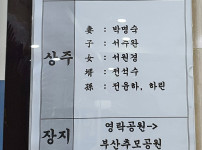 상주
妻 : 박명숙
子 : 서주완
女 : 서원경
壻 : 전석수
孫 : 전윤하, 하린
장지
영락공원->
부산추모공원